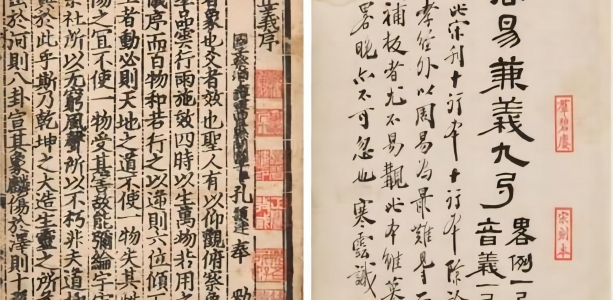 易兼義九弓
畧例一
音義一
此宋刊十行本十行本除
孝經外以周易為最難
補板者尤不易覯此本雖
畧晚亦不可忽也 寒雲識
羣碧廔
宋刻本
義序
國子祭酒 孔 穎達 奉 勑
者象也爻者效也聖人有以仰觀俯察象
羣品雲行雨施效四時以生萬物若用之
咸序而百物和若行之以逆則六位傾
者動必則天地之道不使一物失其性
陽之宜不使一物受其害故能彌綸宇
宗社所以无窮風聲所以不朽非夫道極
與於此乎斯乃乾坤之大造生靈之所
出於河則八卦宣其象麟傷於澤則十